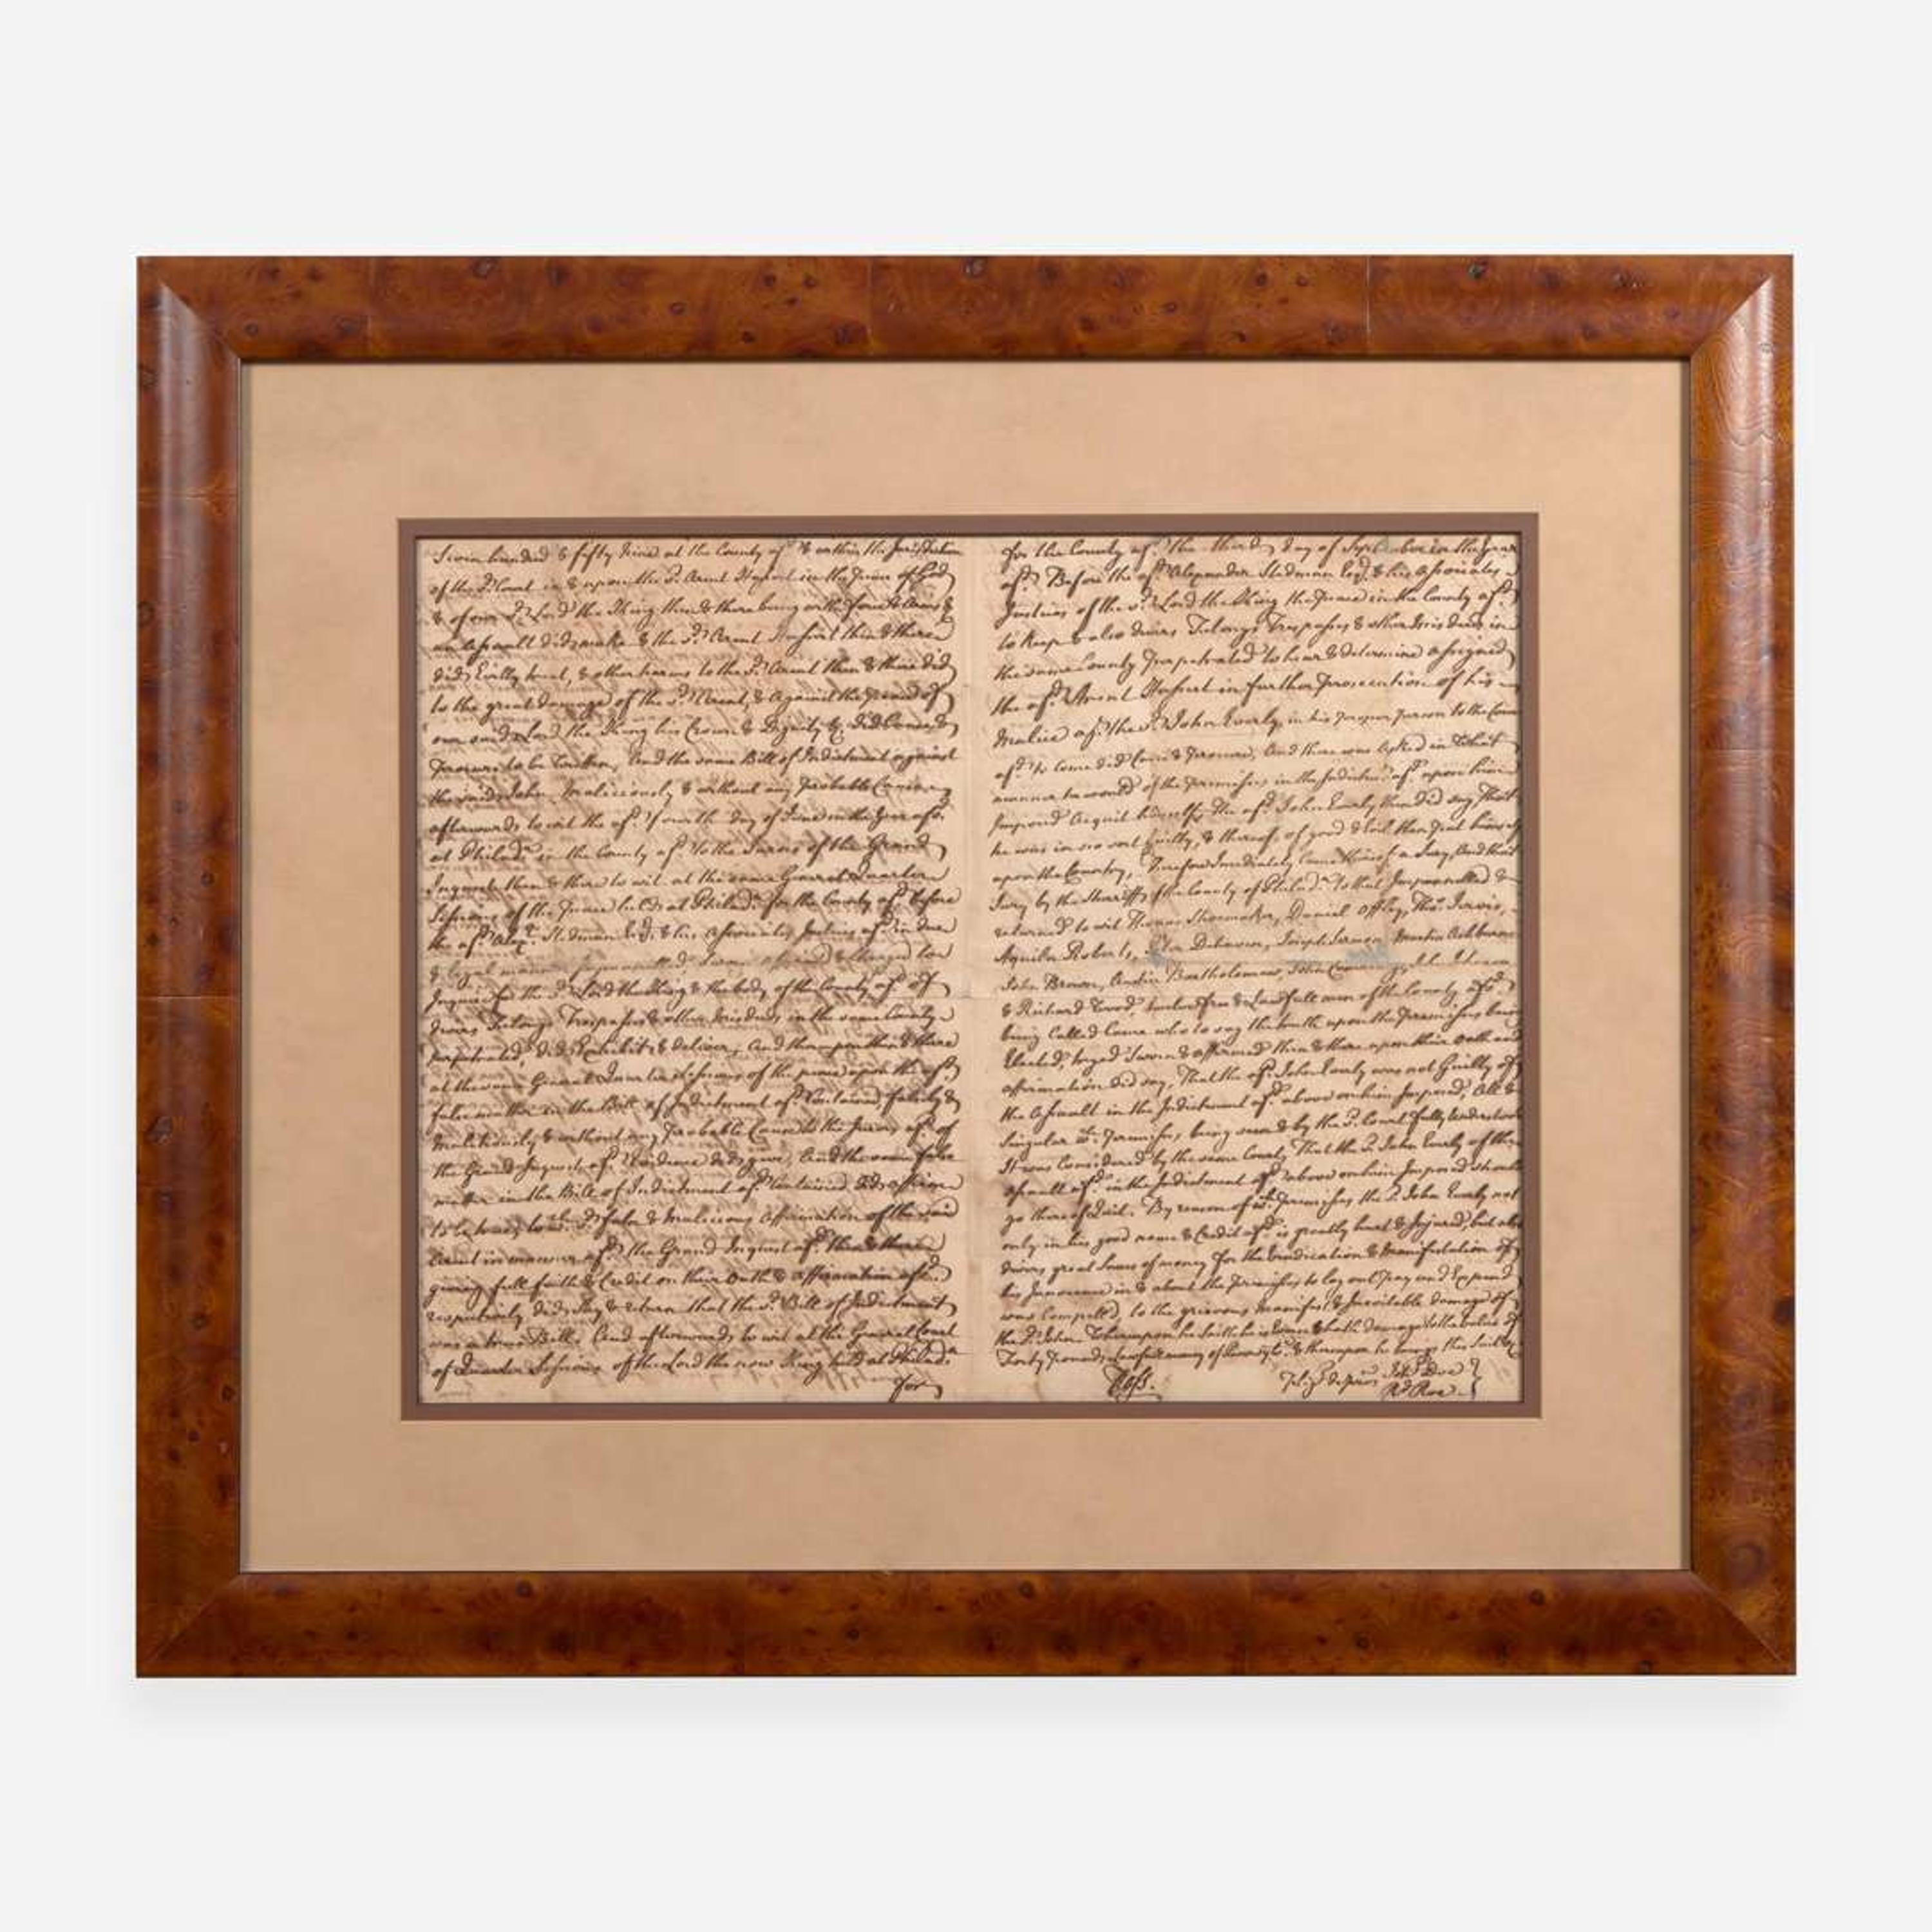 Seven hundred & fifty Nine at the County afd. & within the Jurisdiction
of the sd. Court in & upon the sd. Arent Hassert in the Peace of God
& of our sd. Lord the King then & there being with force & Arms &
an Assault did make & the sd. Arent Hassert then & there
did Evilly treat, & other harms to the sd. Arent then & there did
to the great damage of the sd. Arent, & Against the peace of
our said Lord the King his Crown & Dignity &c did Cause &
procure to be written, And the same Bill of Indictment against
the said John, Maliciously & without any probable Cause
afterwards to wit the afd. fourth day of June in the Year afd.
at Philada. in the County afd. to the Jurors of the Grand
Inquest then & there to wit at the same General Quarter
Sessions of the Peace held at Philada. for the County afd. before
the afd. Alexr. Stedman Esqr. & his Associates Justices afd. in due
& legal manner Impannelled Sworn affirmed & charged to
Inquire for the sd. Lord the King & the body of the County afd. of
divers Felonys Trespasses & other Misdeeds in the same County
perpetrated, did Exhibit & deliver, And thereupon then & there
at the same General Quarter Sessions of the peace upon the afd.
false matter in the Bill of Indictment afd. Contained, falsely &
Malitiously & without any probable Cause to the Jurors afd. of
the Grand Inquest afd. Evidence did give, And the same false
matter in the Bill of Indictment afd. Contained did affirm
to be true, to wh. sd. false & Malicious Affirmation of the said
Arent in manner afd. the Grand Inquest afd. then & there
giving full faith & Credit on their Oaths & affirmation afd.
respectively did Say & return that the sd. Bill of Indictment
was a true Bill, And afterwards to wit at the General Court
of Quarter Sessions of the Lord the now King held at Philada.
for
for the County afd. the third day of September in the Year
afd. Before the afd. Alexander Stedman Esqr. & his Associates
Justices of the sd. Lord the King the peace in the County afd.
to keep & also divers Felonys Trespasses & other Misdeeds in
the same County perpetrated to hear & determine assigned
the afd. Arent Hassert in further prosecution of his
Malice afd. the sd. John Everly in his proper person to the Court
afd. to come did Cause & procure, And there was Asked in What
manner he would of the premises in the Indictmt. afd. upon him
Imposed Acquit himself, The afd. John Everly then did say that
he was in no wise Guilty, & thereof of good & evil then put himself
upon the Country, Therefore Immediately came thereof a Jury, And that
Jury by the Sherriff of the County of Philada. to that Impannelled &
returned to wit Thomas Shoemaker, Daniel Offley, Thos. Jervis,
Aquila Roberts, Peter Dehaven, Joseph Martin Ashburn
John Brown, Andrew Bartholomew, John
& Richard Wood twelve free & Lawfull men of the County afd.
being Called Came who to say the truth upon the premises being
Elected, tryed Sworn & affirmed then & there upon their Oath and
affirmation did say, That the afd. John Everly was not Guilty of
the Assault in the Indictment afd. above on him Imposed, All &
Singular wh. premises, being seen & by the sd. Court fully understood
It was Considered by the same County That the sd. John Everly of the
assault afd. in the Indictment afd. above on him Imposed should
go thereof Quit. By reason of wh. premises the sd. John Everly not
only in his good name & Credit afd. is greatly hurt & Injured, but also
divers great Sums of money for the Vindication & Manifestation of
his Innocence in & about the premises to lay out pay and Expend
was Compelled, to the grievous manifest & Inevitable damage of
the sd. John Whereupon he saith he is worse & hath damage to the value of
Forty pounds Lawful money of Pennsylva. & thereupon he brings this Suit &c
Jno. Doe
Rd. Roe